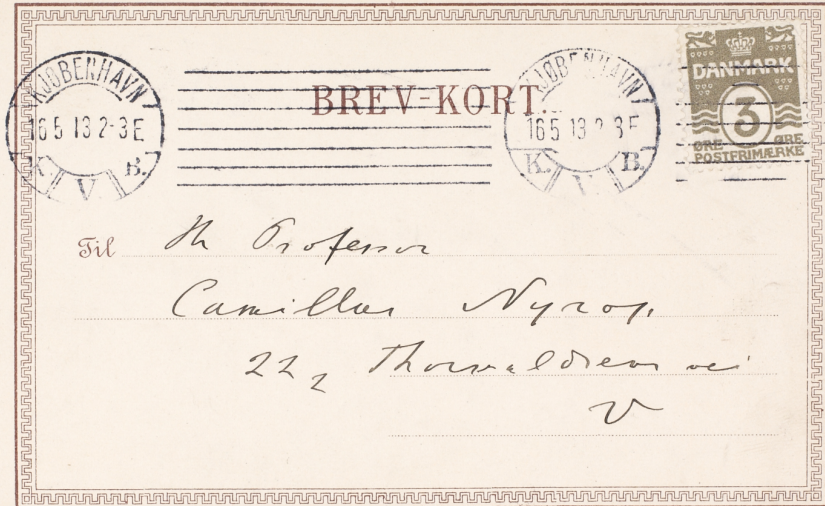 BREV-KORT.
KJØBENHAVN
16 5 13 2-3 E
K. V B.
KJØBENHAVN
16 5 13 2-3 E
K. V B.
DANMARK
3
ØRE ØRE
POSTFRIMÆRKE
Til Hr Professor
Camillus Nyrop,
22 2 Thorvaldsens vei
V